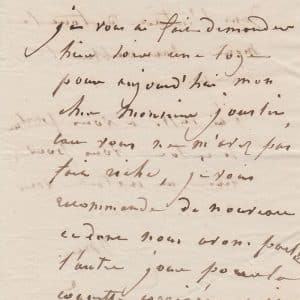 j'ai vous ai fait demander
hier soir une loge
pour aujourd'hui mon
cher monsieur
vous ne m'avez pas
fait riche, je vous
recommande de nouveau
nous avons parlé
l'autre jour pour la